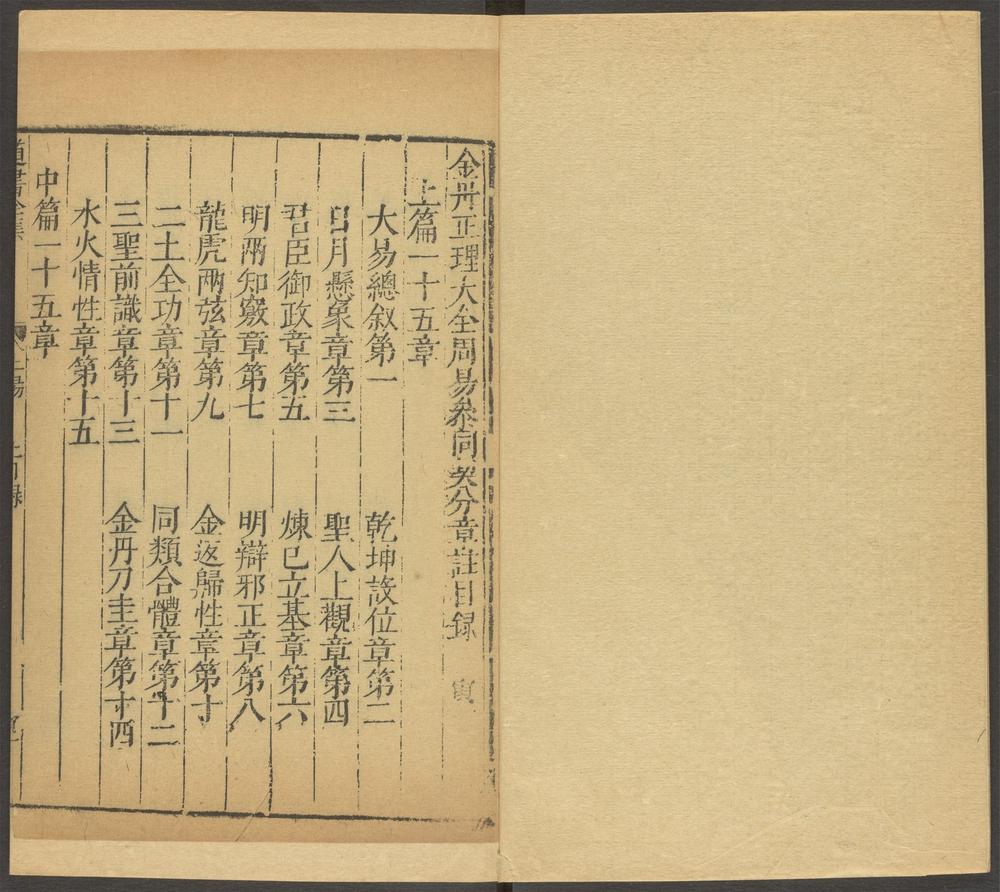 金丹正理大全周易參同契分章註目録 寅
上篇一十五章
大易總叙第一 乾坤設位章第二
日月懸象章第三 聖人上觀章第四
君臣御政章第五 煉已立基章第六
明兩知竅章第七 明辯邪正章第八
龍虎兩弦章第九 金返歸性章第十
二土全功章第十一 同類合體章第十二
三聖前識章第十三 金丹刀圭章第十四
水火情性章第十五
中篇一十五章
道書全集